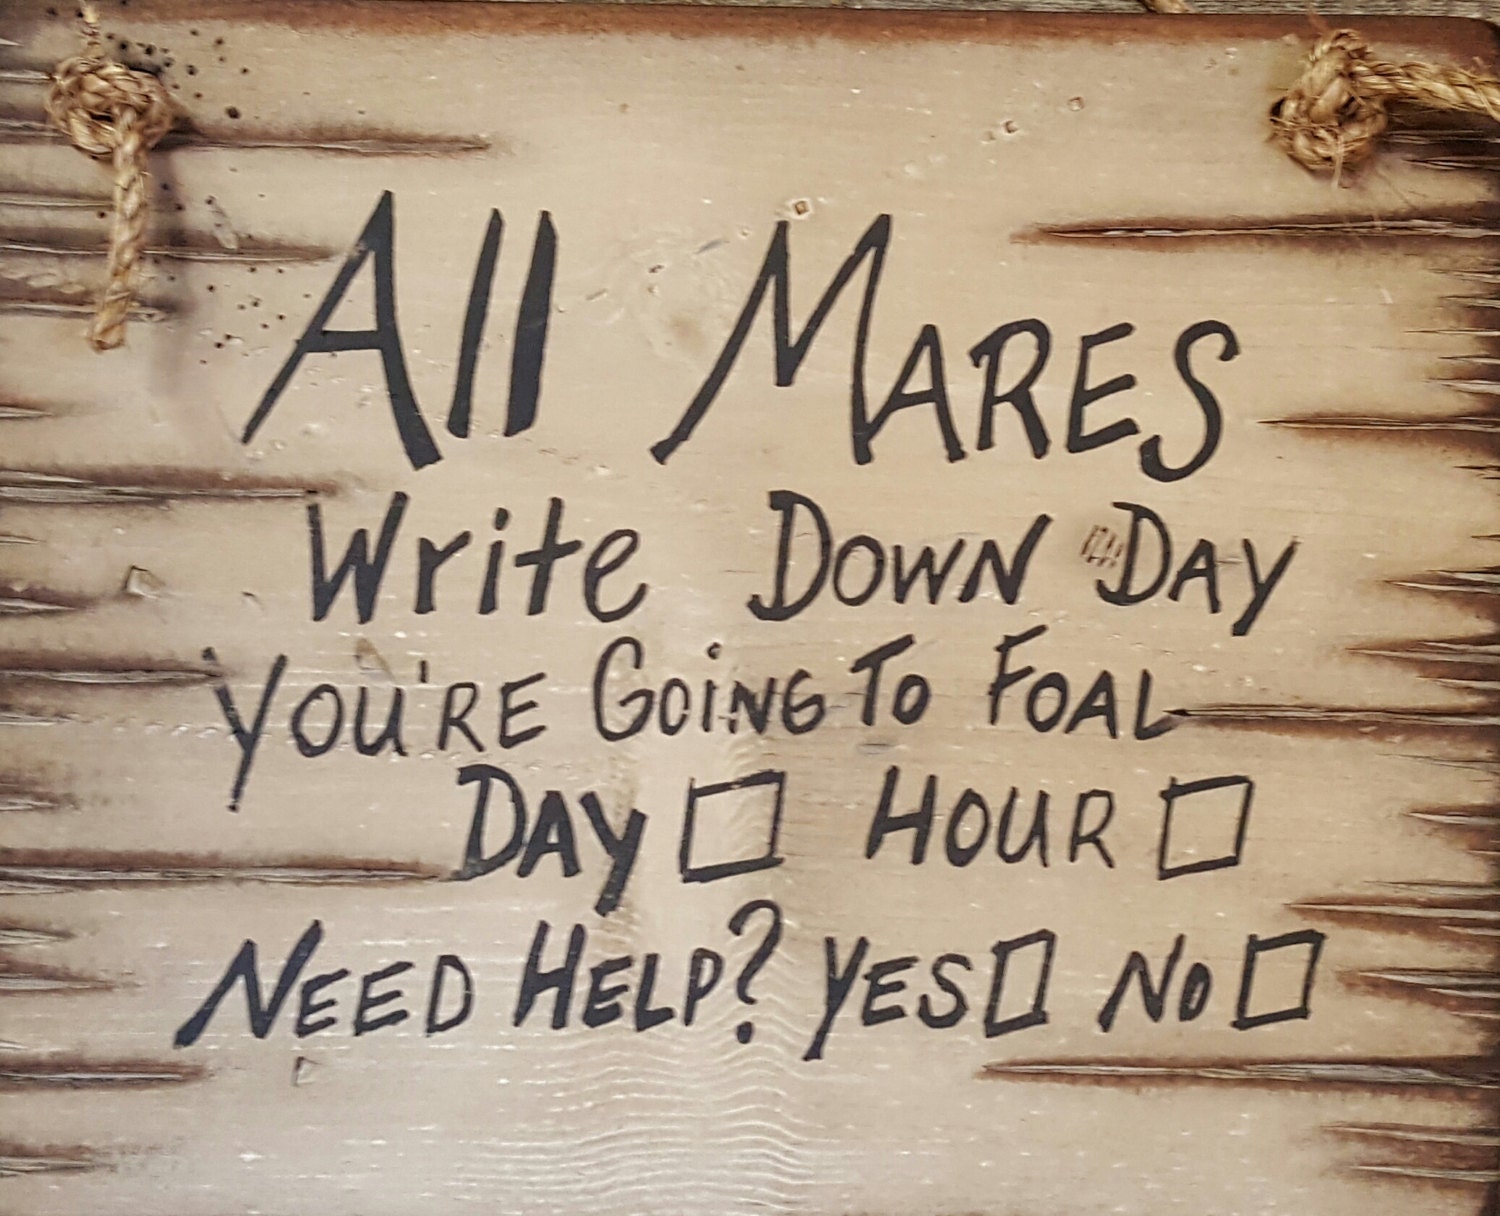 All MARES
Write DOWN DAY
YOU'RE GOiNG To FOAL
DAY □ HOUR □
NEED HELP? YES □ No □